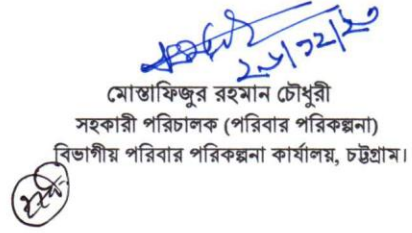 ২৮/১২/২৩
মোস্তাফিজুর রহমান চৌধুরী
সহকারী পরিচালক (পরিবার পরিকল্পনা)
বিভাগীয় পরিবার পরিকল্পনা কার্যালয়, চট্টগ্রাম।